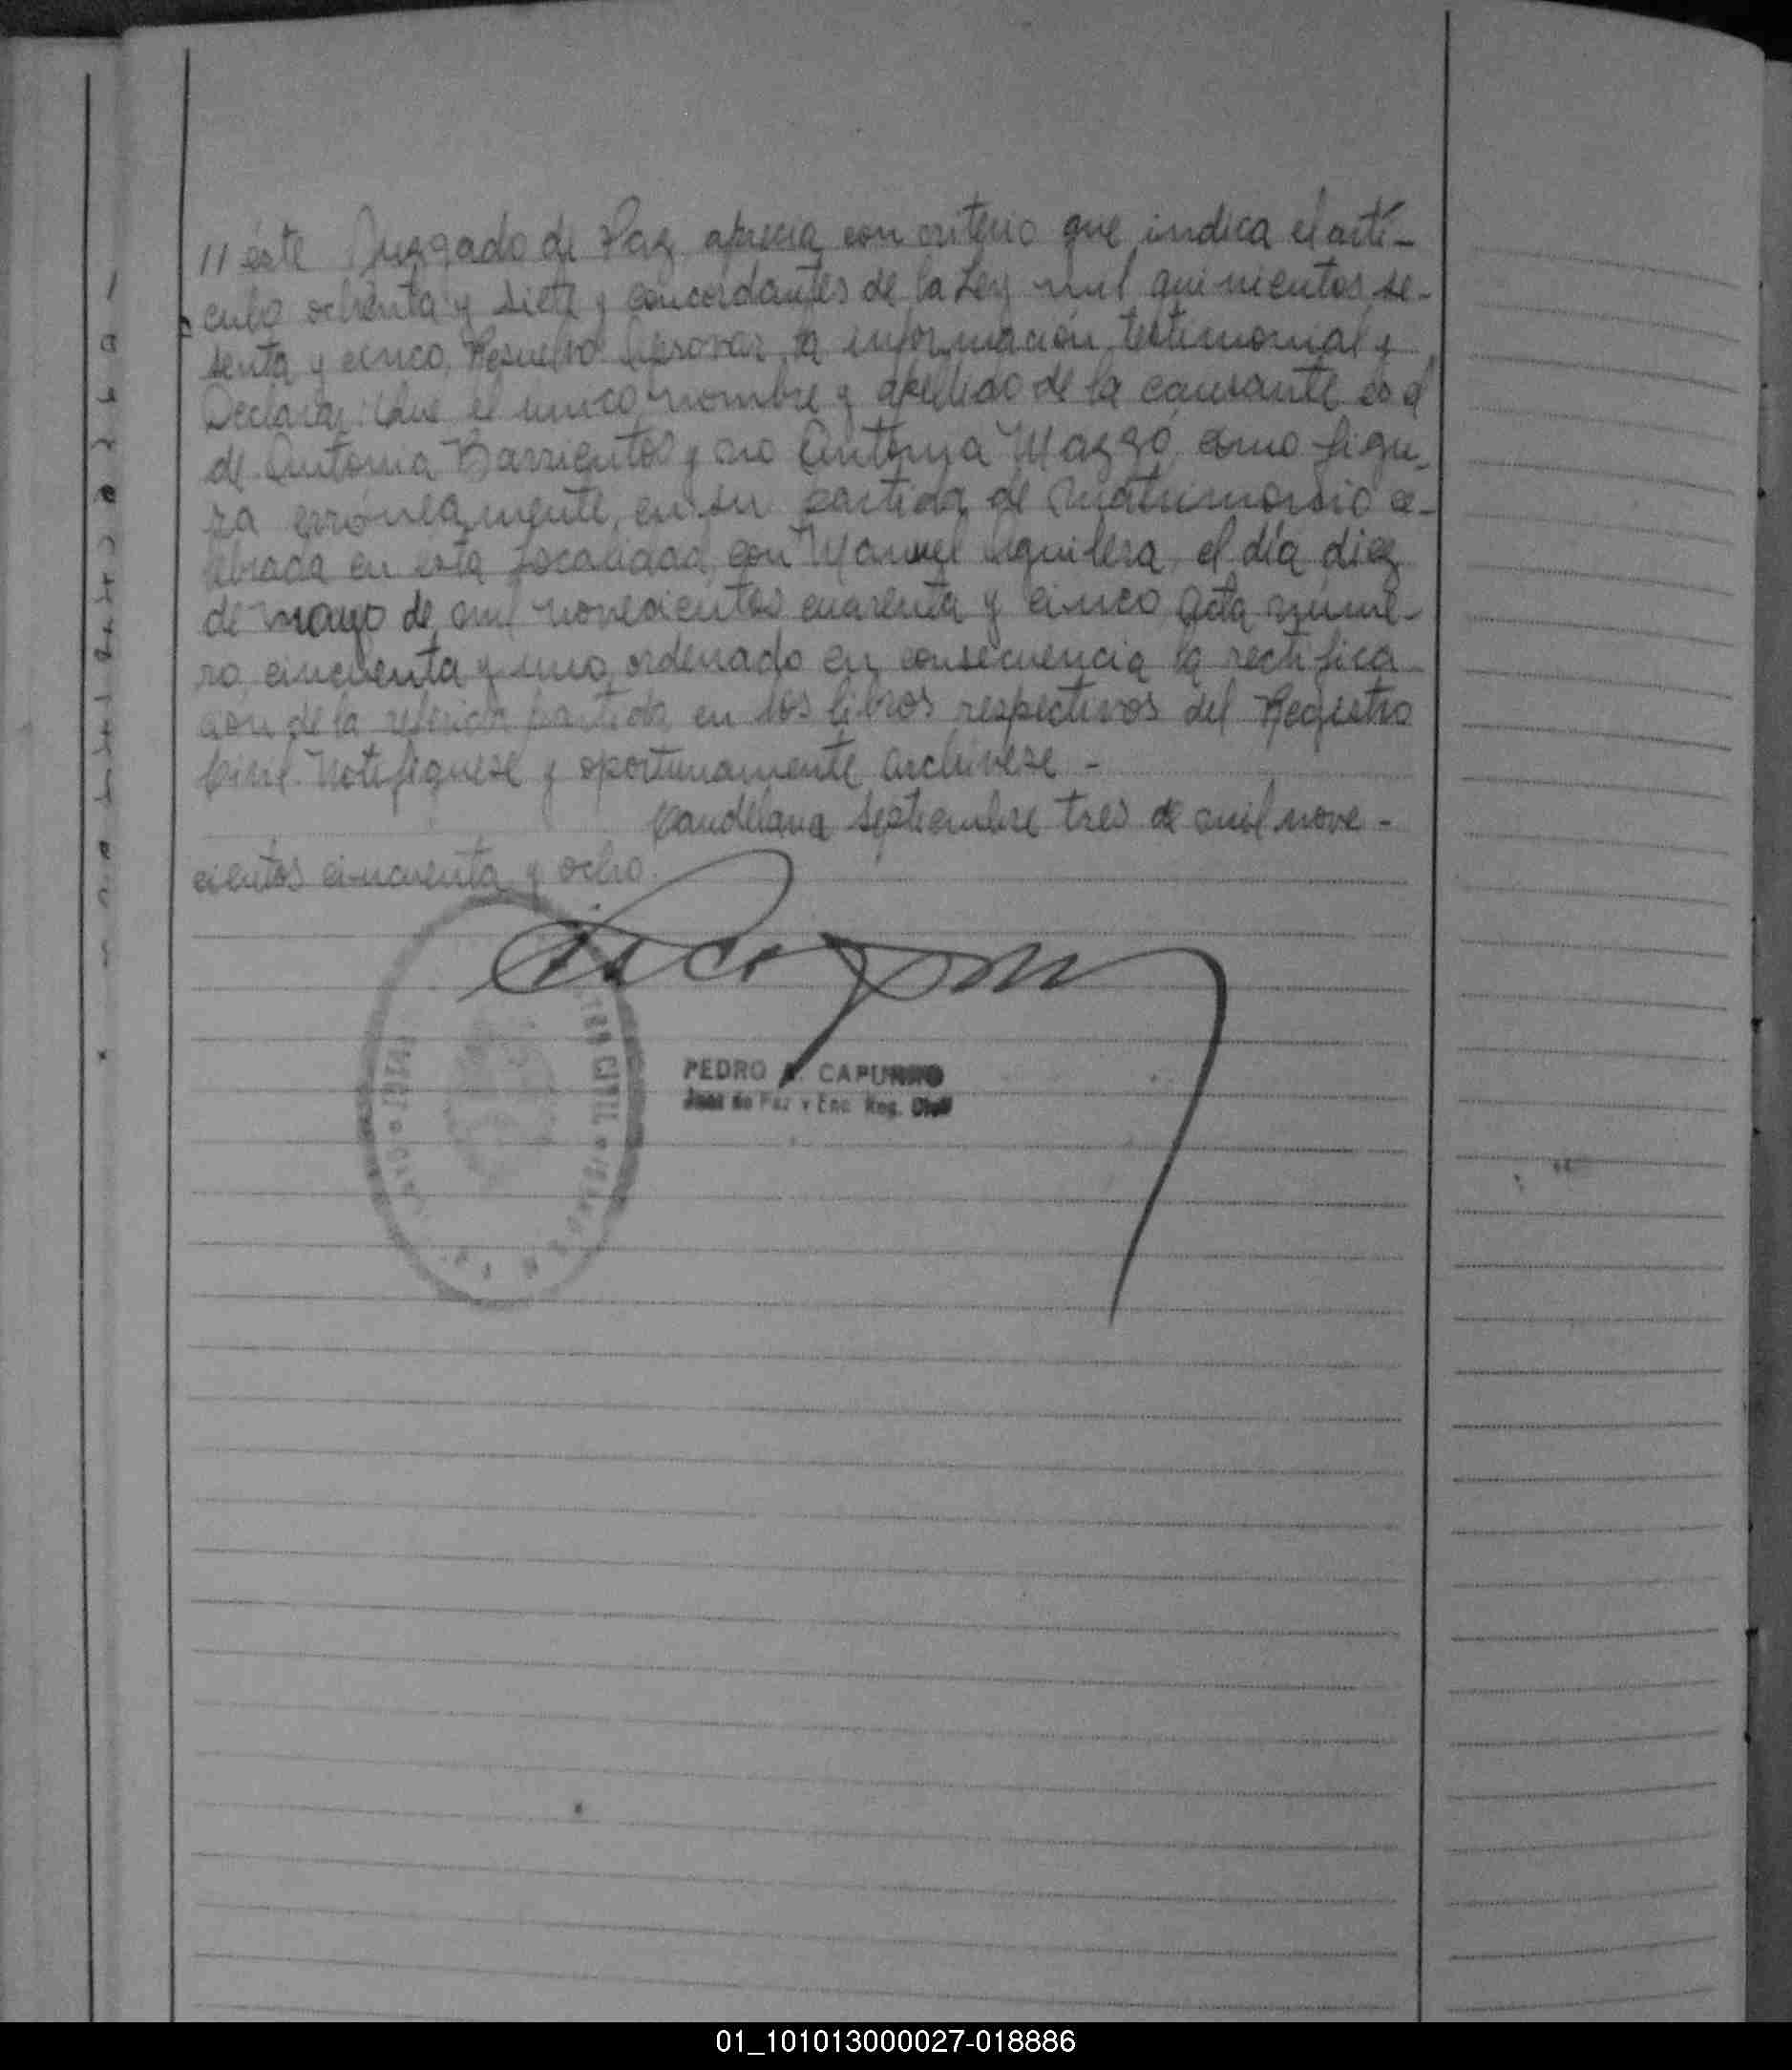 // éste Juzgado de Paz aprecia con criterio que indica el artí-
culo ochenta y siete y concordantes de la Ley mil quinientos se-
senta y cinco, Resuelvo Aprovar la información testimonial y
Declarar: Que el unico nombre y apellido de la causante es el
de Antonia Barrientos y no Antonia Mazzó como figu-
ra erróneamente, en su partida de matrimonio ce-
lebrada en esta localidad, con Manuel Aguilera, el día diez
de mayo de mil novecientos cuarenta y cinco, acta núme-
ro cincuenta y uno, ordenado en consecuencia la rectifica
ción de la referida partida en los libros respectivos del Registro
Civil. Notifiquese y oportunamente archivese -
Candelaria septiembre tres de mil nove -
cientos cincuenta y ocho.
PEDRO A. CAPURRO
Juez de Paz y Enc. Reg. Civil
01_101013000027-018886